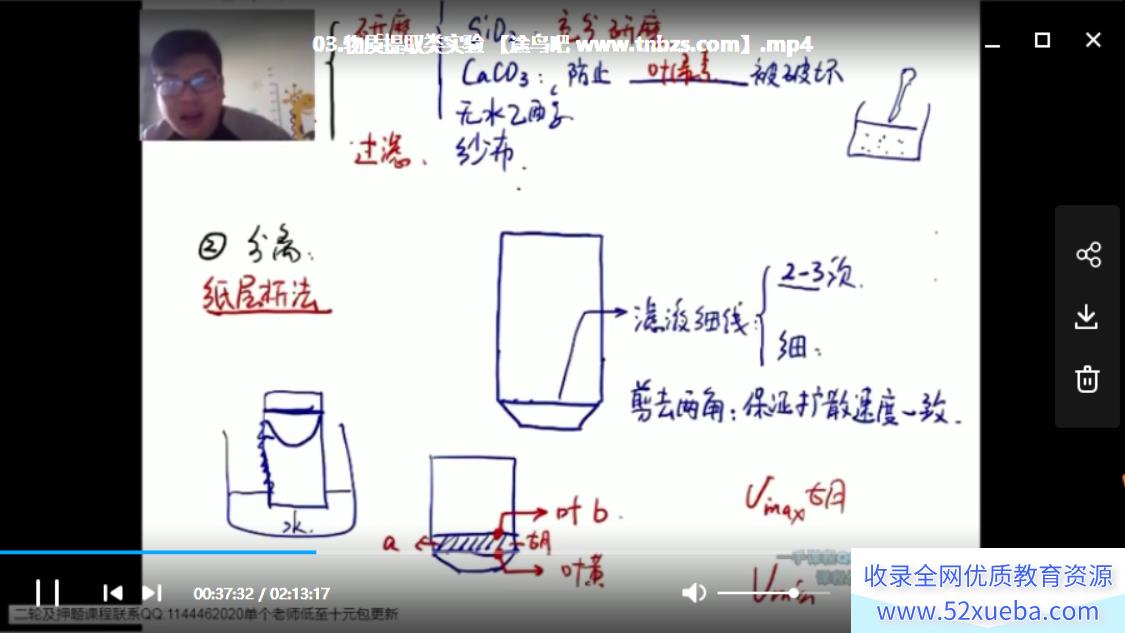 研磨
SiO₂：充分研磨
03.物质提取类实验 【途鸟吧 www.tnbzs.com】.mp4
CaCO₃：防止 叶绿素 被破坏
无水乙醇
过滤、纱布.
② 分离：
纸层析法
滤液细线：
2-3次.
细：
剪去两角：保证扩散速度一致.
水.
叶b.
a
胡
叶黄
Vmax 胡
Vmin
00:37:32 / 02:13:17
二轮及押题课程联系QQ:1144462020单个老师低至十元包更新
收录全网优质教育资源
www.52xueba.com